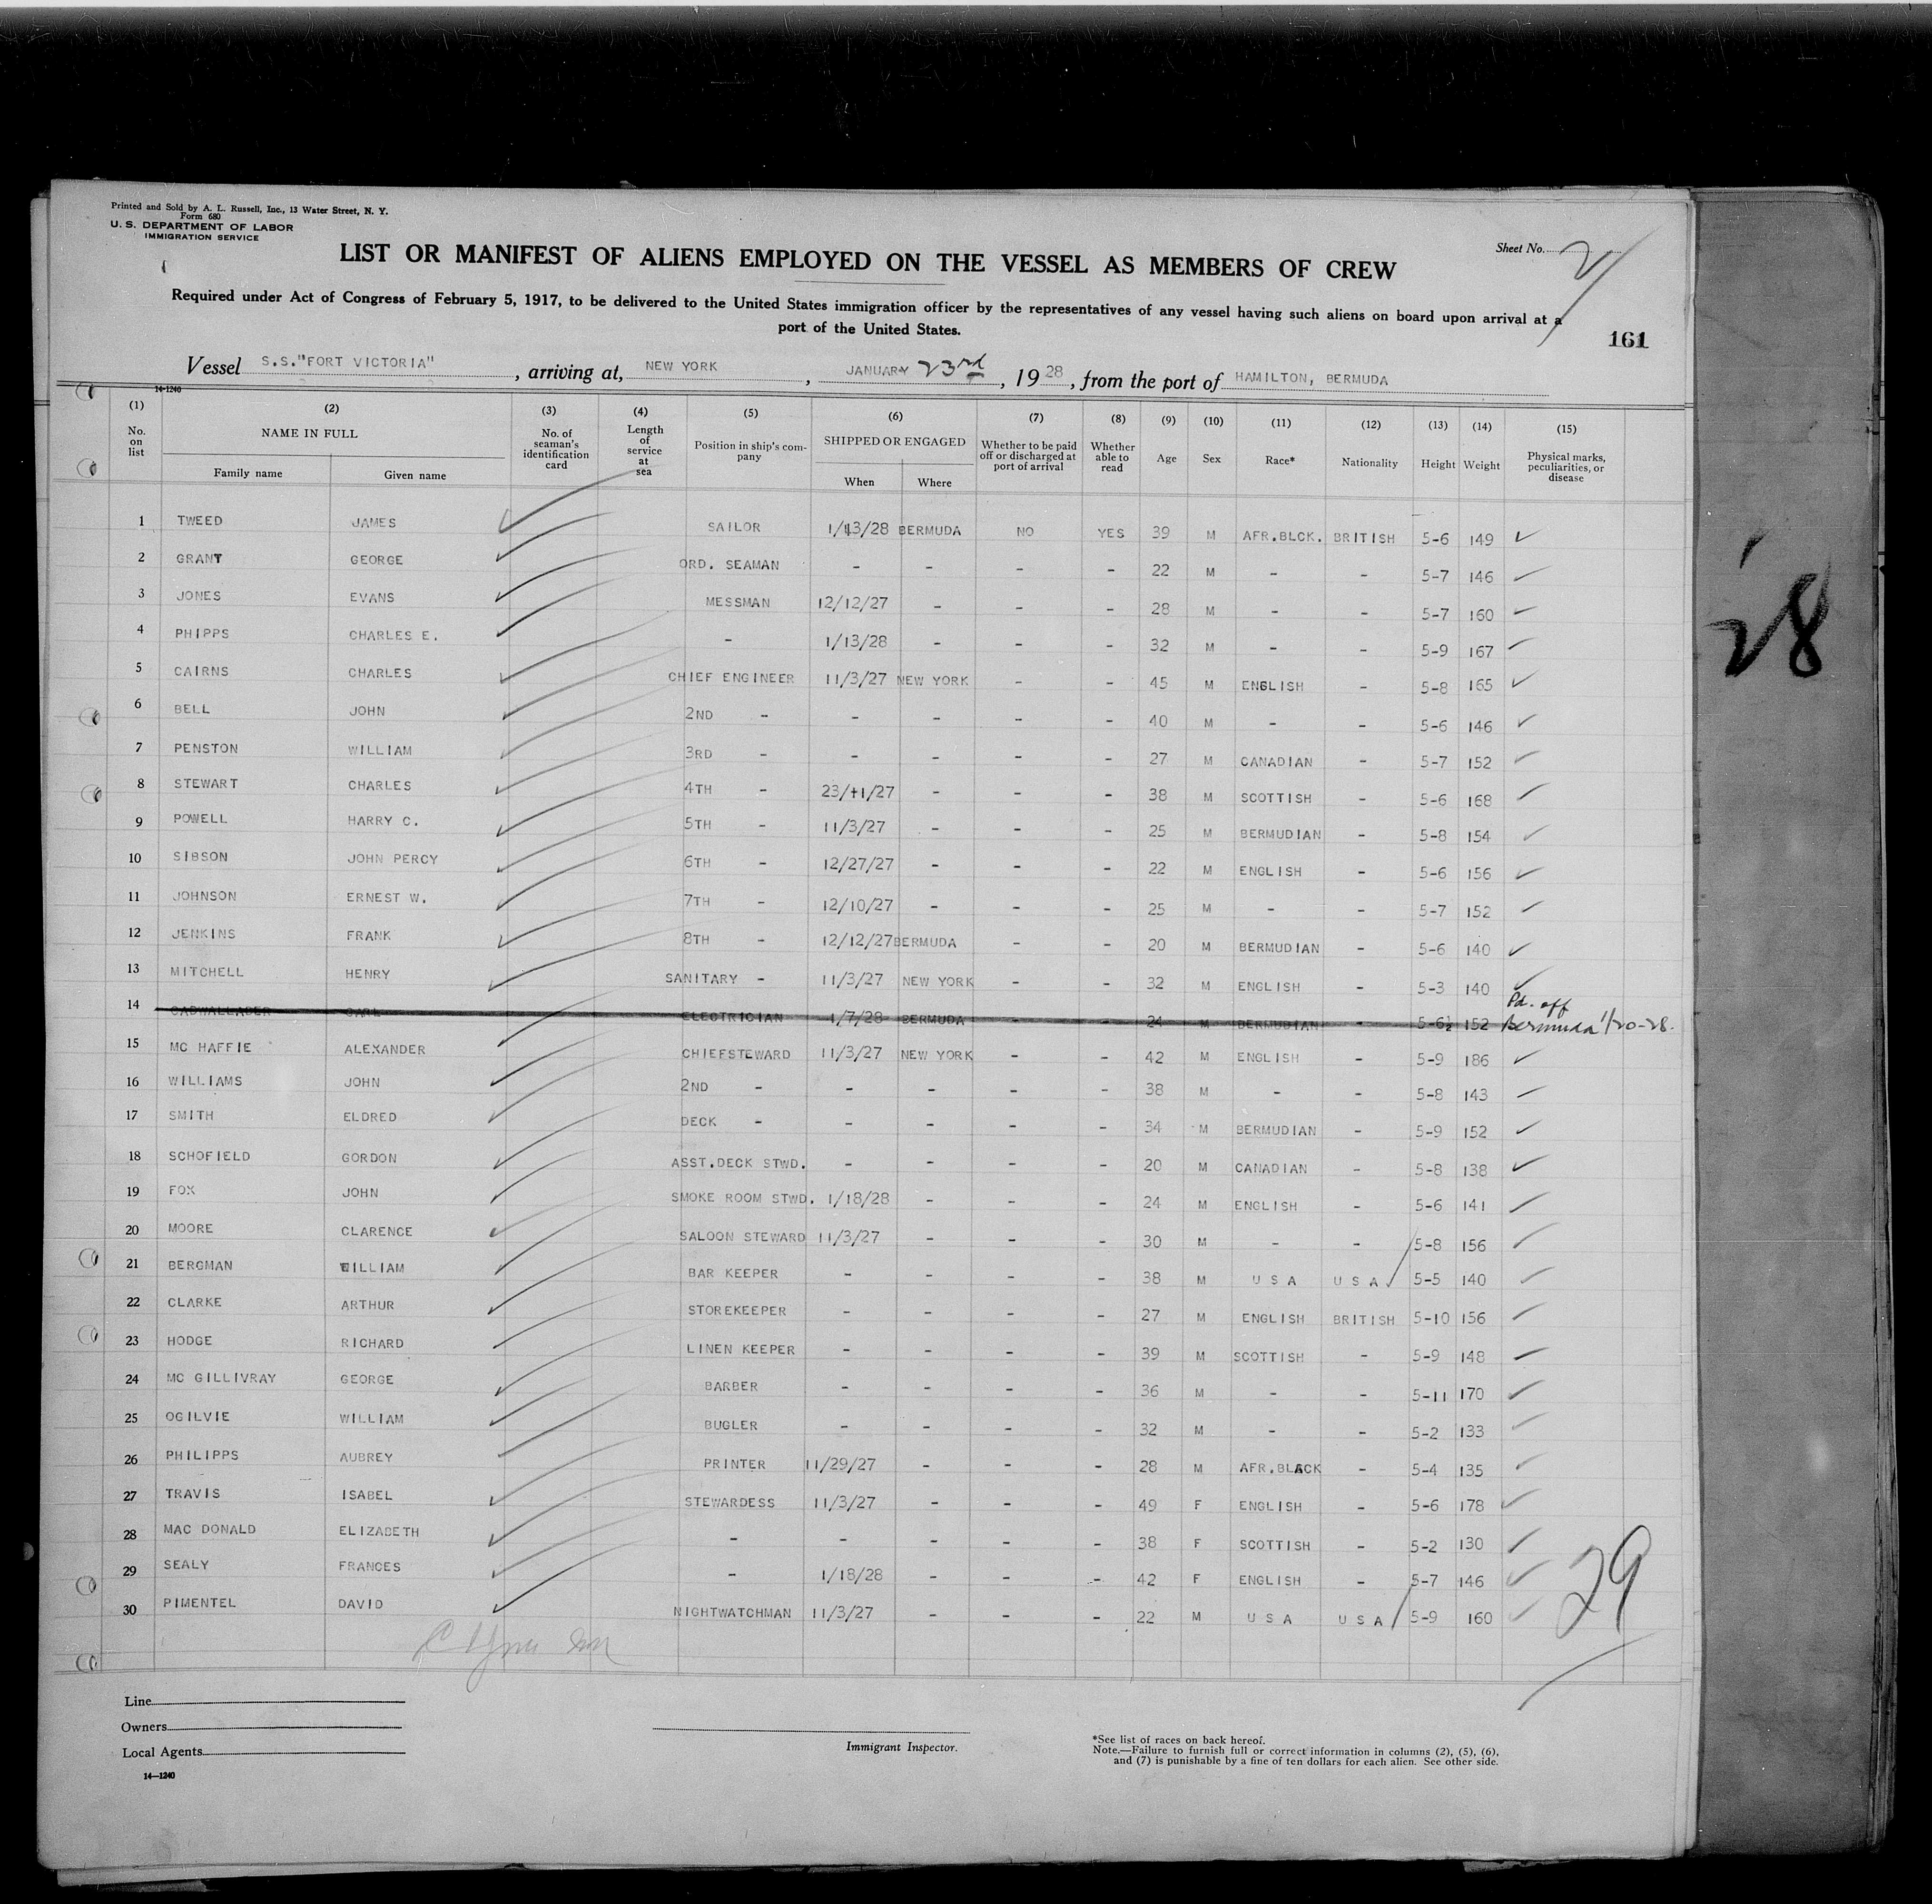 Printed and Sold by A. L. Russell, Inc., 13 Water Street, N. Y.
Form 680
U. S. DEPARTMENT OF LABOR
IMMIGRATION SERVICE
Sheet No. 2
LIST OR MANIFEST OF ALIENS EMPLOYED ON THE VESSEL AS MEMBERS OF CREW
Required under Act of Congress of February 5, 1917, to be delivered to the United States immigration officer by the representatives of any vessel having such aliens on board upon arrival at a
port of the United States.
161
Vessel S.S."FORT VICTORIA", arriving at, NEW YORK, JANUARY 23rd, 1928, from the port of HAMILTON, BERMUDA
14-1240
(1) (2) (3) (4) (5) (6) (7) (8) (9) (10) (11) (12) (13) (14) (15)
No. on list NAME IN FULL No. of seaman's identification card Length of service at sea Position in ship's company SHIPPED OR ENGAGED Whether to be paid off or discharged at port of arrival Whether able to read Age Sex Race* Nationality Height Weight Physical marks, peculiarities, or disease
Family name Given name When Where
1 TWEED JAMES SAILOR 1/13/28 BERMUDA NO YES 39 M AFR.BLCK. BRITISH 5-6 149
2 GRANT GEORGE ORD. SEAMAN - - - - 22 M - - 5-7 146
3 JONES EVANS MESSMAN 12/12/27 - - - 28 M - - 5-7 160
4 PHIPPS CHARLES E. - 1/13/28 - - - 32 M - - 5-9 167
5 CAIRNS CHARLES CHIEF ENGINEER 11/3/27 NEW YORK - - 45 M ENGLISH - 5-8 165
6 BELL JOHN 2ND - - - - - 40 M - - 5-6 146
7 PENSTON WILLIAM 3RD - - - - - 27 M CANADIAN - 5-7 152
8 STEWART CHARLES 4TH - 23/11/27 - - - 38 M SCOTTISH - 5-6 168
9 POWELL HARRY C. 5TH - 11/3/27 - - - 25 M BERMUDIAN - 5-8 154
10 SIBSON JOHN PERCY 6TH - 12/27/27 - - - 22 M ENGLISH - 5-6 156
11 JOHNSON ERNEST W. 7TH - 12/10/27 - - - 25 M - - 5-7 152
12 JENKINS FRANK 8TH - 12/12/27 BERMUDA - - 20 M BERMUDIAN - 5-6 140
13 MITCHELL HENRY SANITARY - 11/3/27 NEW YORK - - 32 M ENGLISH - 5-3 140
14 CADWALLADER CARL ELECTRICIAN 1/7/28 BERMUDA - - 24 M BERMUDIAN - 5-6½ 152 Pd. off Bermuda 1/20-28.
15 MC HAFFIE ALEXANDER CHIEFSTEWARD 11/3/27 NEW YORK - - 42 M ENGLISH - 5-9 186
16 WILLIAMS JOHN 2ND - - - - - 38 M - - 5-8 143
17 SMITH ELDRED DECK - - - - - 34 M BERMUDIAN - 5-9 152
18 SCHOFIELD GORDON ASST.DECK STWD. - - - - 20 M CANADIAN - 5-8 138
19 FOX JOHN SMOKE ROOM STWD. 1/18/28 - - - 24 M ENGLISH - 5-6 141
20 MOORE CLARENCE SALOON STEWARD 11/3/27 - - - 30 M - - 5-8 156
21 BERGMAN WILLIAM BAR KEEPER - - - - 38 M U S A U S A 5-5 140
22 CLARKE ARTHUR STOREKEEPER - - - - 27 M ENGLISH BRITISH 5-10 156
23 HODGE RICHARD LINEN KEEPER - - - - 39 M SCOTTISH - 5-9 148
24 MC GILLIVRAY GEORGE BARBER - - - - 36 M - - 5-11 170
25 OGILVIE WILLIAM BUGLER - - - - 32 M - - 5-2 133
26 PHILIPPS AUBREY PRINTER 11/29/27 - - - 28 M AFR.BLACK - 5-4 135
27 TRAVIS ISABEL STEWARDESS 11/3/27 - - - 49 F ENGLISH - 5-6 178
28 MAC DONALD ELIZABETH - - - - - 38 F SCOTTISH - 5-2 130
29 SEALY FRANCES - 1/18/28 - - - 42 F ENGLISH - 5-7 146
30 PIMENTEL DAVID NIGHTWATCHMAN 11/3/27 - - - 22 M U S A U S A 5-9 160
29
Line
Owners
Local Agents
Immigrant Inspector.
*See list of races on back hereof.
Note.—Failure to furnish full or correct information in columns (2), (5), (6),
and (7) is punishable by a fine of ten dollars for each alien. See other side.
14—1240
'28